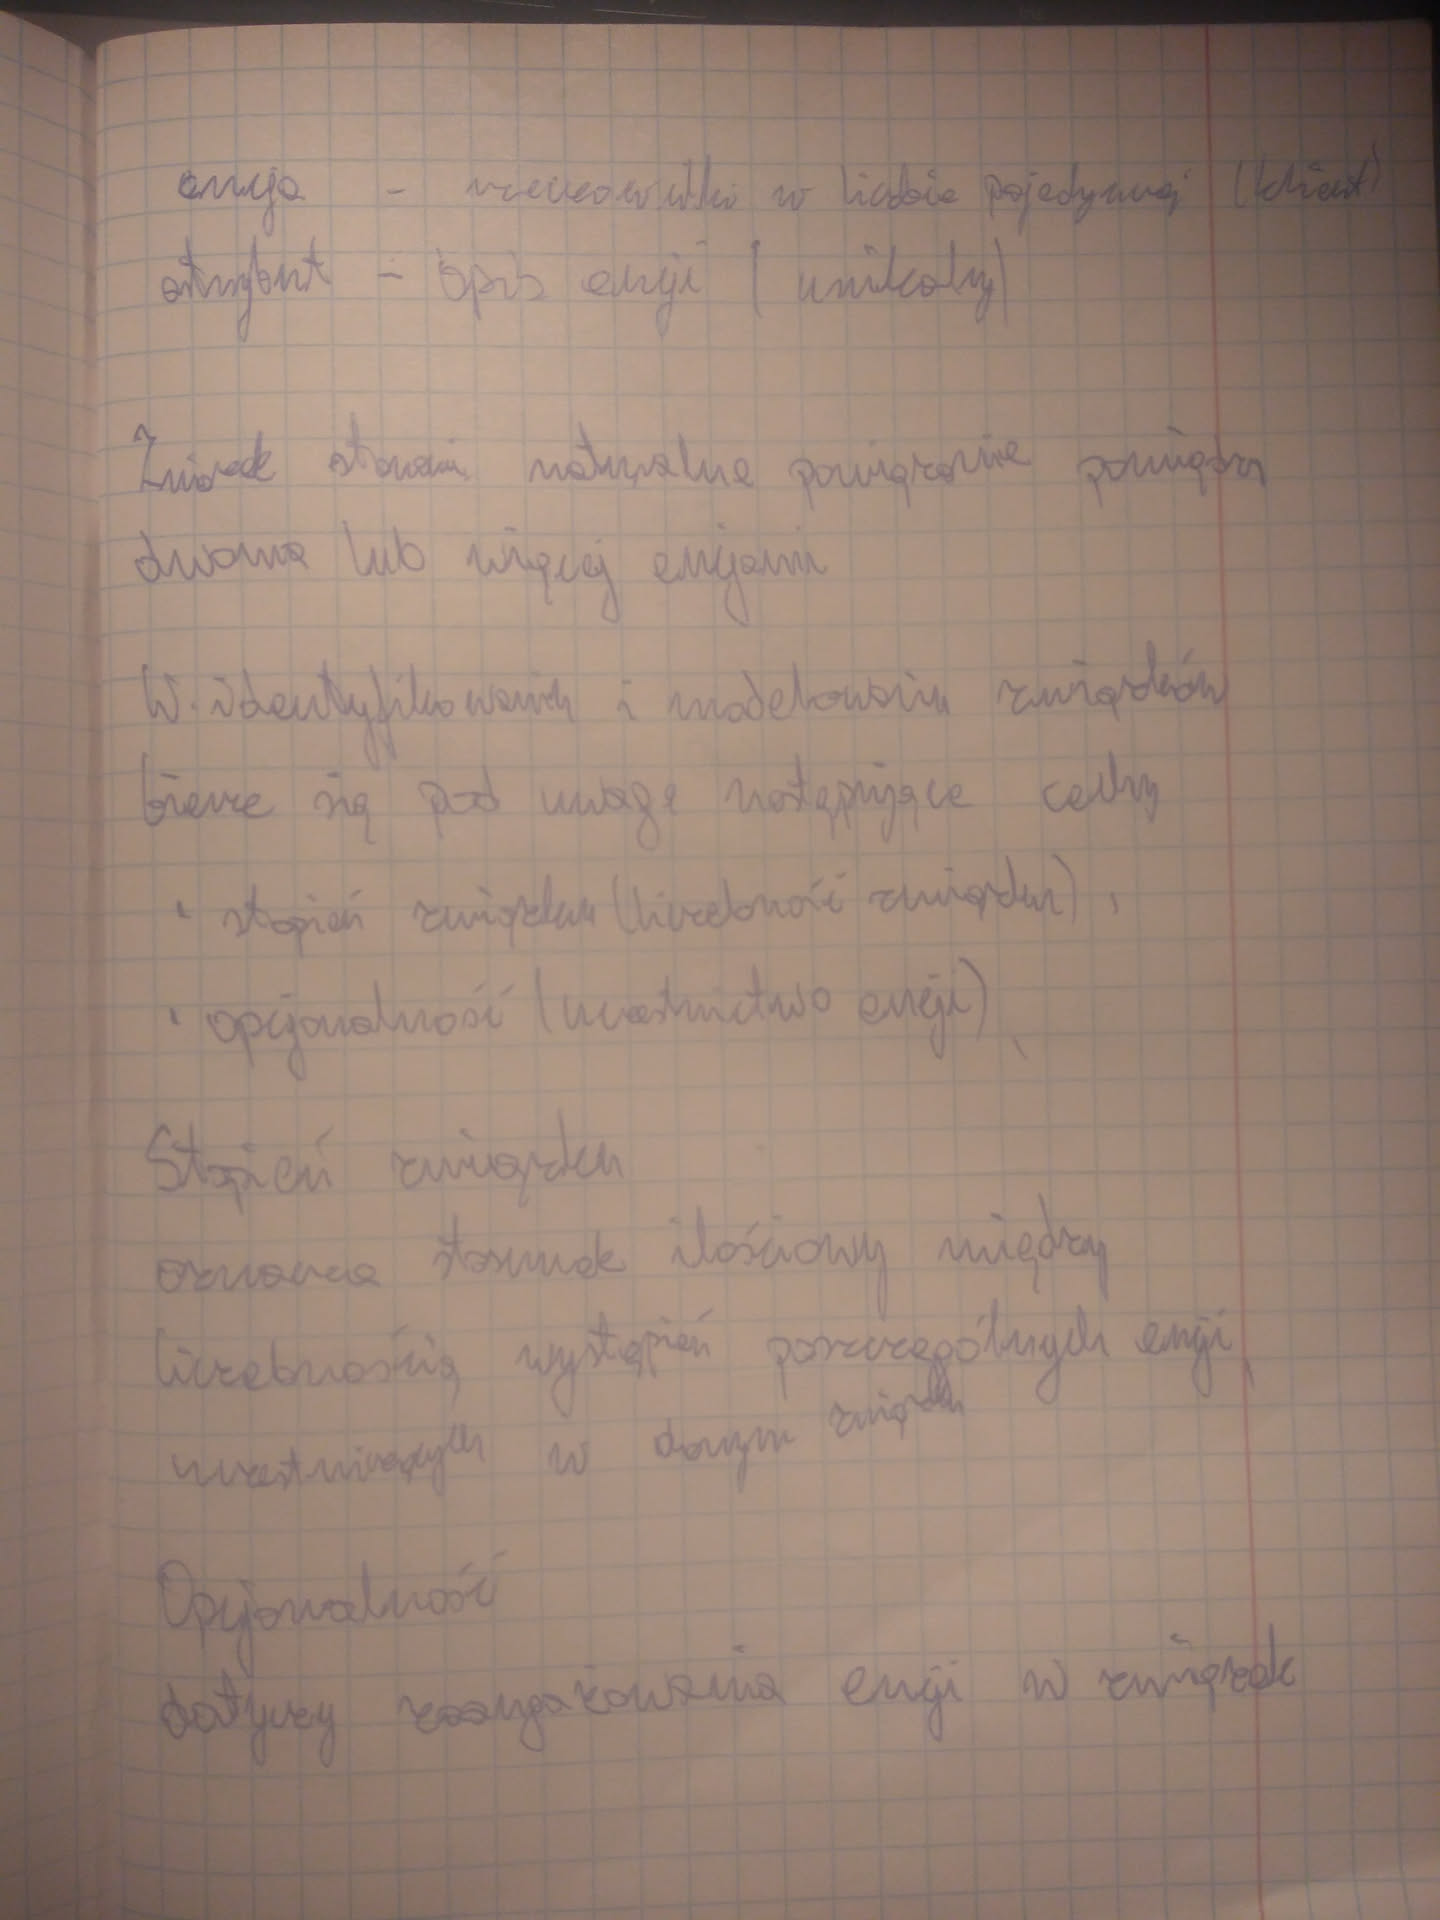 encja - rzeczowniki w liczbie pojedynczej (klient)
atrybut - opis encji (unikalny)
Związek stanowi naturalne powiązanie pomiędzy
dwoma lub więcej encjami
W identyfikowaniu i modelowaniu związków
bierze się pod uwagę następujące cechy
• stopień związku (liczebność związku),
• opcjonalność (uczestnictwo encji),
Stopień związku
oznacza stosunek ilościowy między
liczebnością wystąpień poszczególnych encji,
uczestniczących w danym związku
Opcjonalność
dotyczy zaangażowania encji w związek